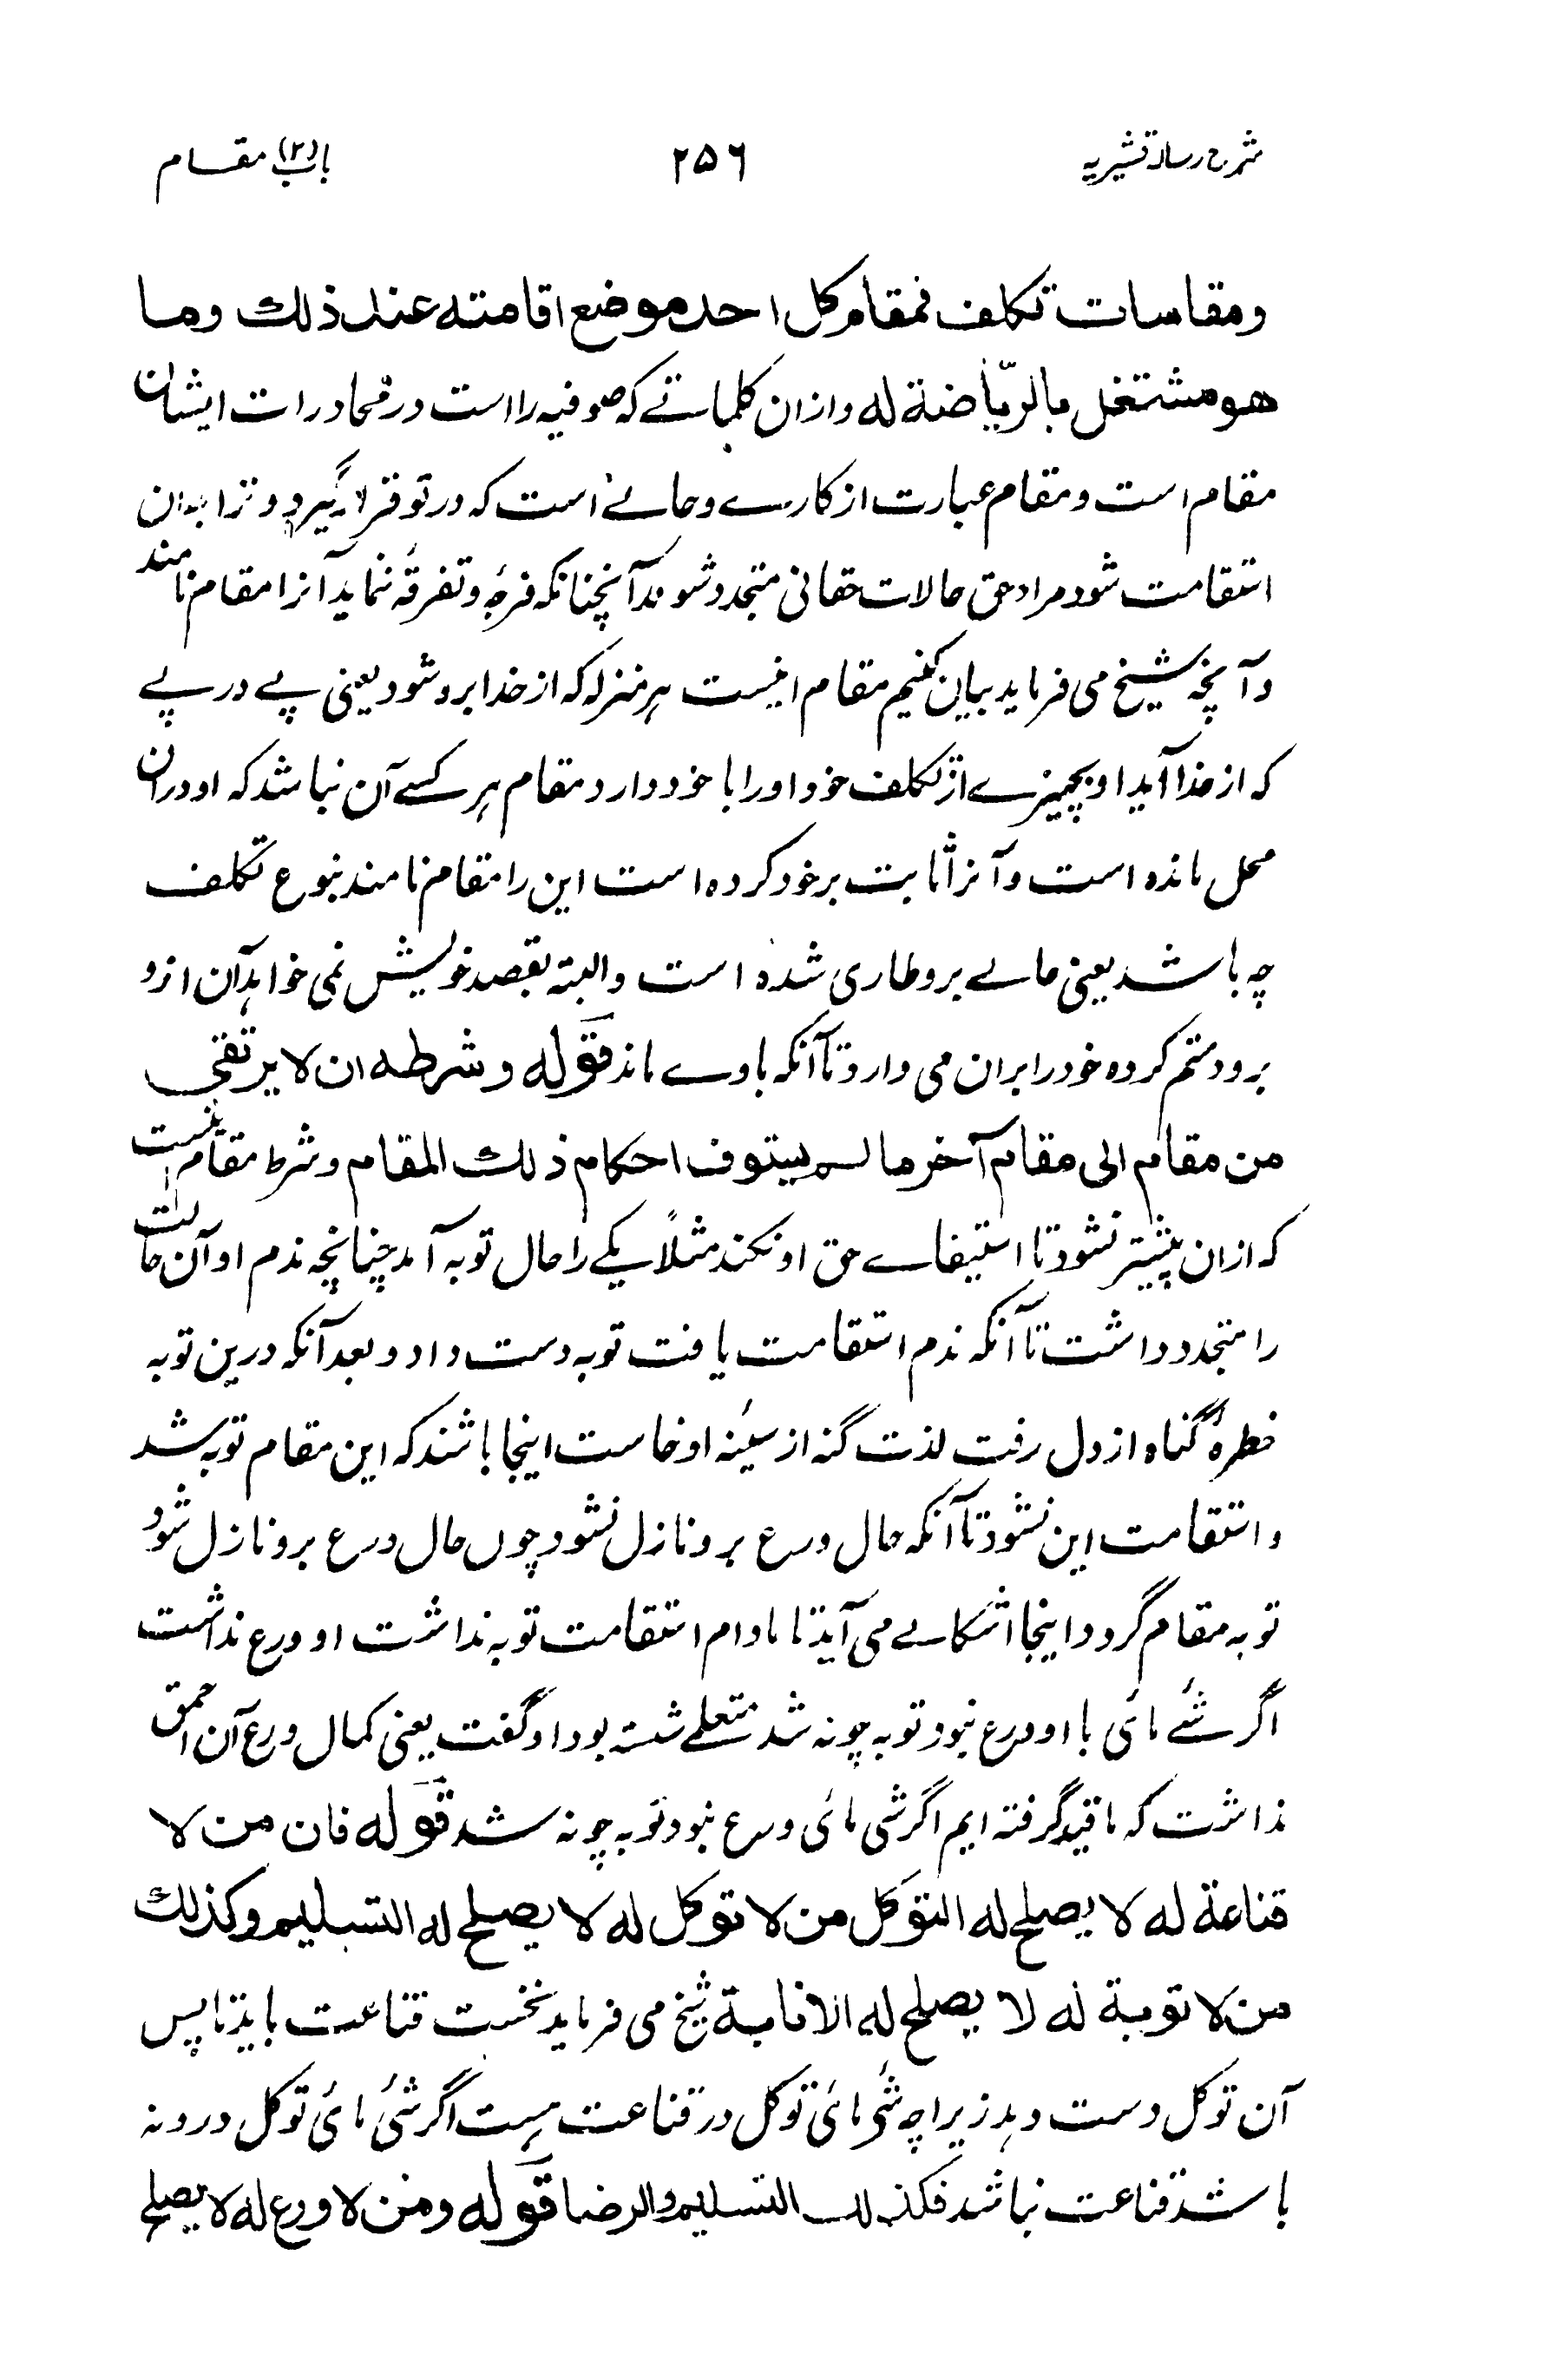 شرح رسالہ قشیریہ ۲۵۶ باب (۲) مقام
ومقاسات تكلف فمقام كل احد موضع اقامته عند ذلك وما
هو مشتغل بالرّياضة له وازان کلماتے که صوفیه را است در محاورات ایشان
مقام است ومقام عبارت از کارے وحالے است که در تو قرار گیرد وترا بدان
استقامت شود مراد حق حالات حقانی متجدد شوند آنچنانکه فرجۂ وتفرقۂ ننماید آنرا مقام نامند
وآنچه شیخ می فرماید بیان کنیم مقام اینست هر منزله که از خدا برو شود یعنی پے درپے
که از خدا آید او بچیزے از تکلف خود اورا با خود دارد مقام هر کسے آن نباشد که او دران
محل مانده است وآنرا ثابت بر خود کرده است این را مقام نامند بنوع تکلف
چه باشد یعنی حالے برو طاری شده است والبته بقصد خویش نمی خواهد آن ازو
برود ستم کرده خود را بران می دارد تا آنکه باوے ماند قوله وشرطه ان لا يرتقي
من مقام الى مقام آخر ما لم يستوف احكام ذلك المقام وشرط مقام اینست
که ازان پیشتر نشود تا استیفاے حق او نکند مثلاً یکے را حال توبه آمد چنانچه ندم او آن حالت
را متجدد داشت تا آنکه ندم استقامت یافت توبه دست داد وبعد آنکه درین توبه
خطرۂ گناه از دل رفت لذت گنه از سینۂ او خاست اینجا باشند که این مقام توبه شد
واستقامت این نشود تا آنکه حال ورع برو نازل نشود چوں حال ورع برو نازل شود
توبه مقام گردد اینجا اشکالے می آید تا مادام استقامت توبه نداشت او ورع نداشت
اگر شئے مائی با او ورع نبود توبه چونه شد متعلمے شسته بود او گفت یعنی کمال ورع آن احمق
نداشت که ما قید گرفته ایم اگر شی مائی ورع نبود توبه چونه شد قوله فان من لا
قناعة له لا يصلح له التوكل من لا توكل له لا يصلح له التسليم وكذلك
من لا توبة له لا يصلح له الانابة شیخ می فرماید نخست قناعت باید تا پس
آن توکل دست دهد زیراچه شئ مائی توکل در قناعت هست اگر شئ مائی توکل درو نه
باشد قناعت نباشد فکذلك التسليم والرضا قوله ومن لا ورع له لا يصلح